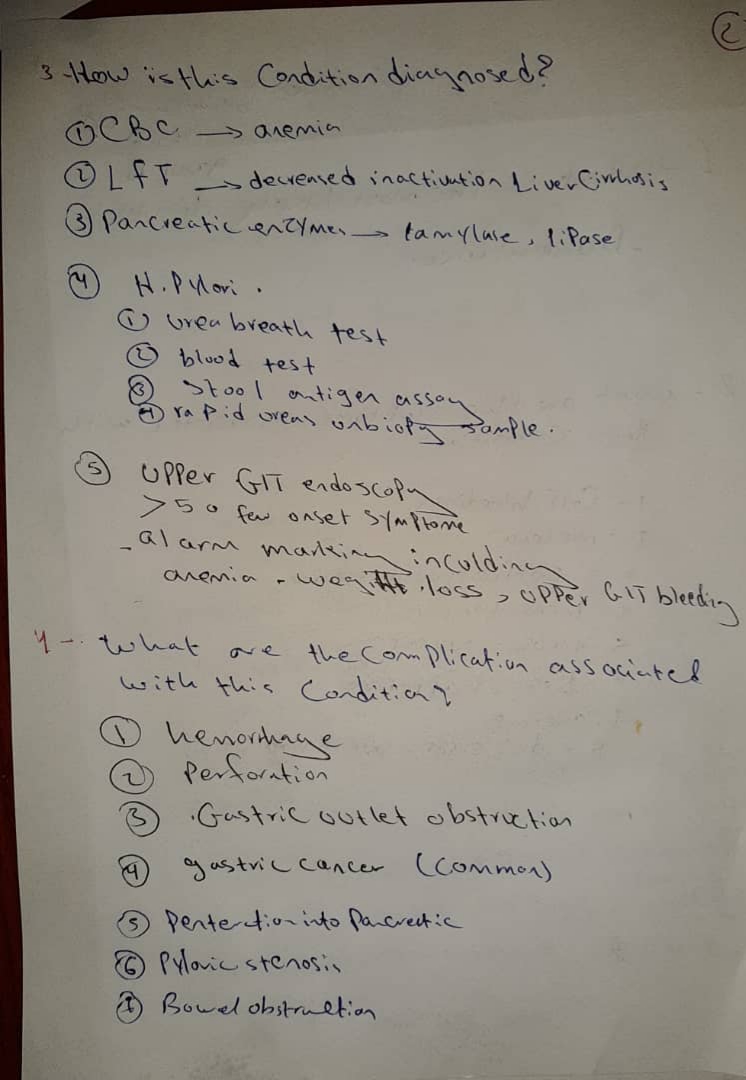 2
3-How is this Condition diagnosed?
① CBC → anemia
② LfT → decreased inactivation Liver Cirrhosis
③ Pancreatic enzymes → amylase, lipase
④ H. Pylori.
① urea breath test
② blood test
③ Stool antigen assay
④ rapid ureas biopy sample.
⑤ Upper GIT endoscopy
>50 few onset symptome
-alarm marking inculding
anemia - loss, upper GIT bleeding
4-. What are the complication associated
with this Condition?
① hemorrhage
② Perforation
③ .Gastric outlet obstruction
④ gastric cancer (Common)
⑤ Penteration into Pancreatic
⑥ Pyloric stenosis
⑦ Bowel obstruction